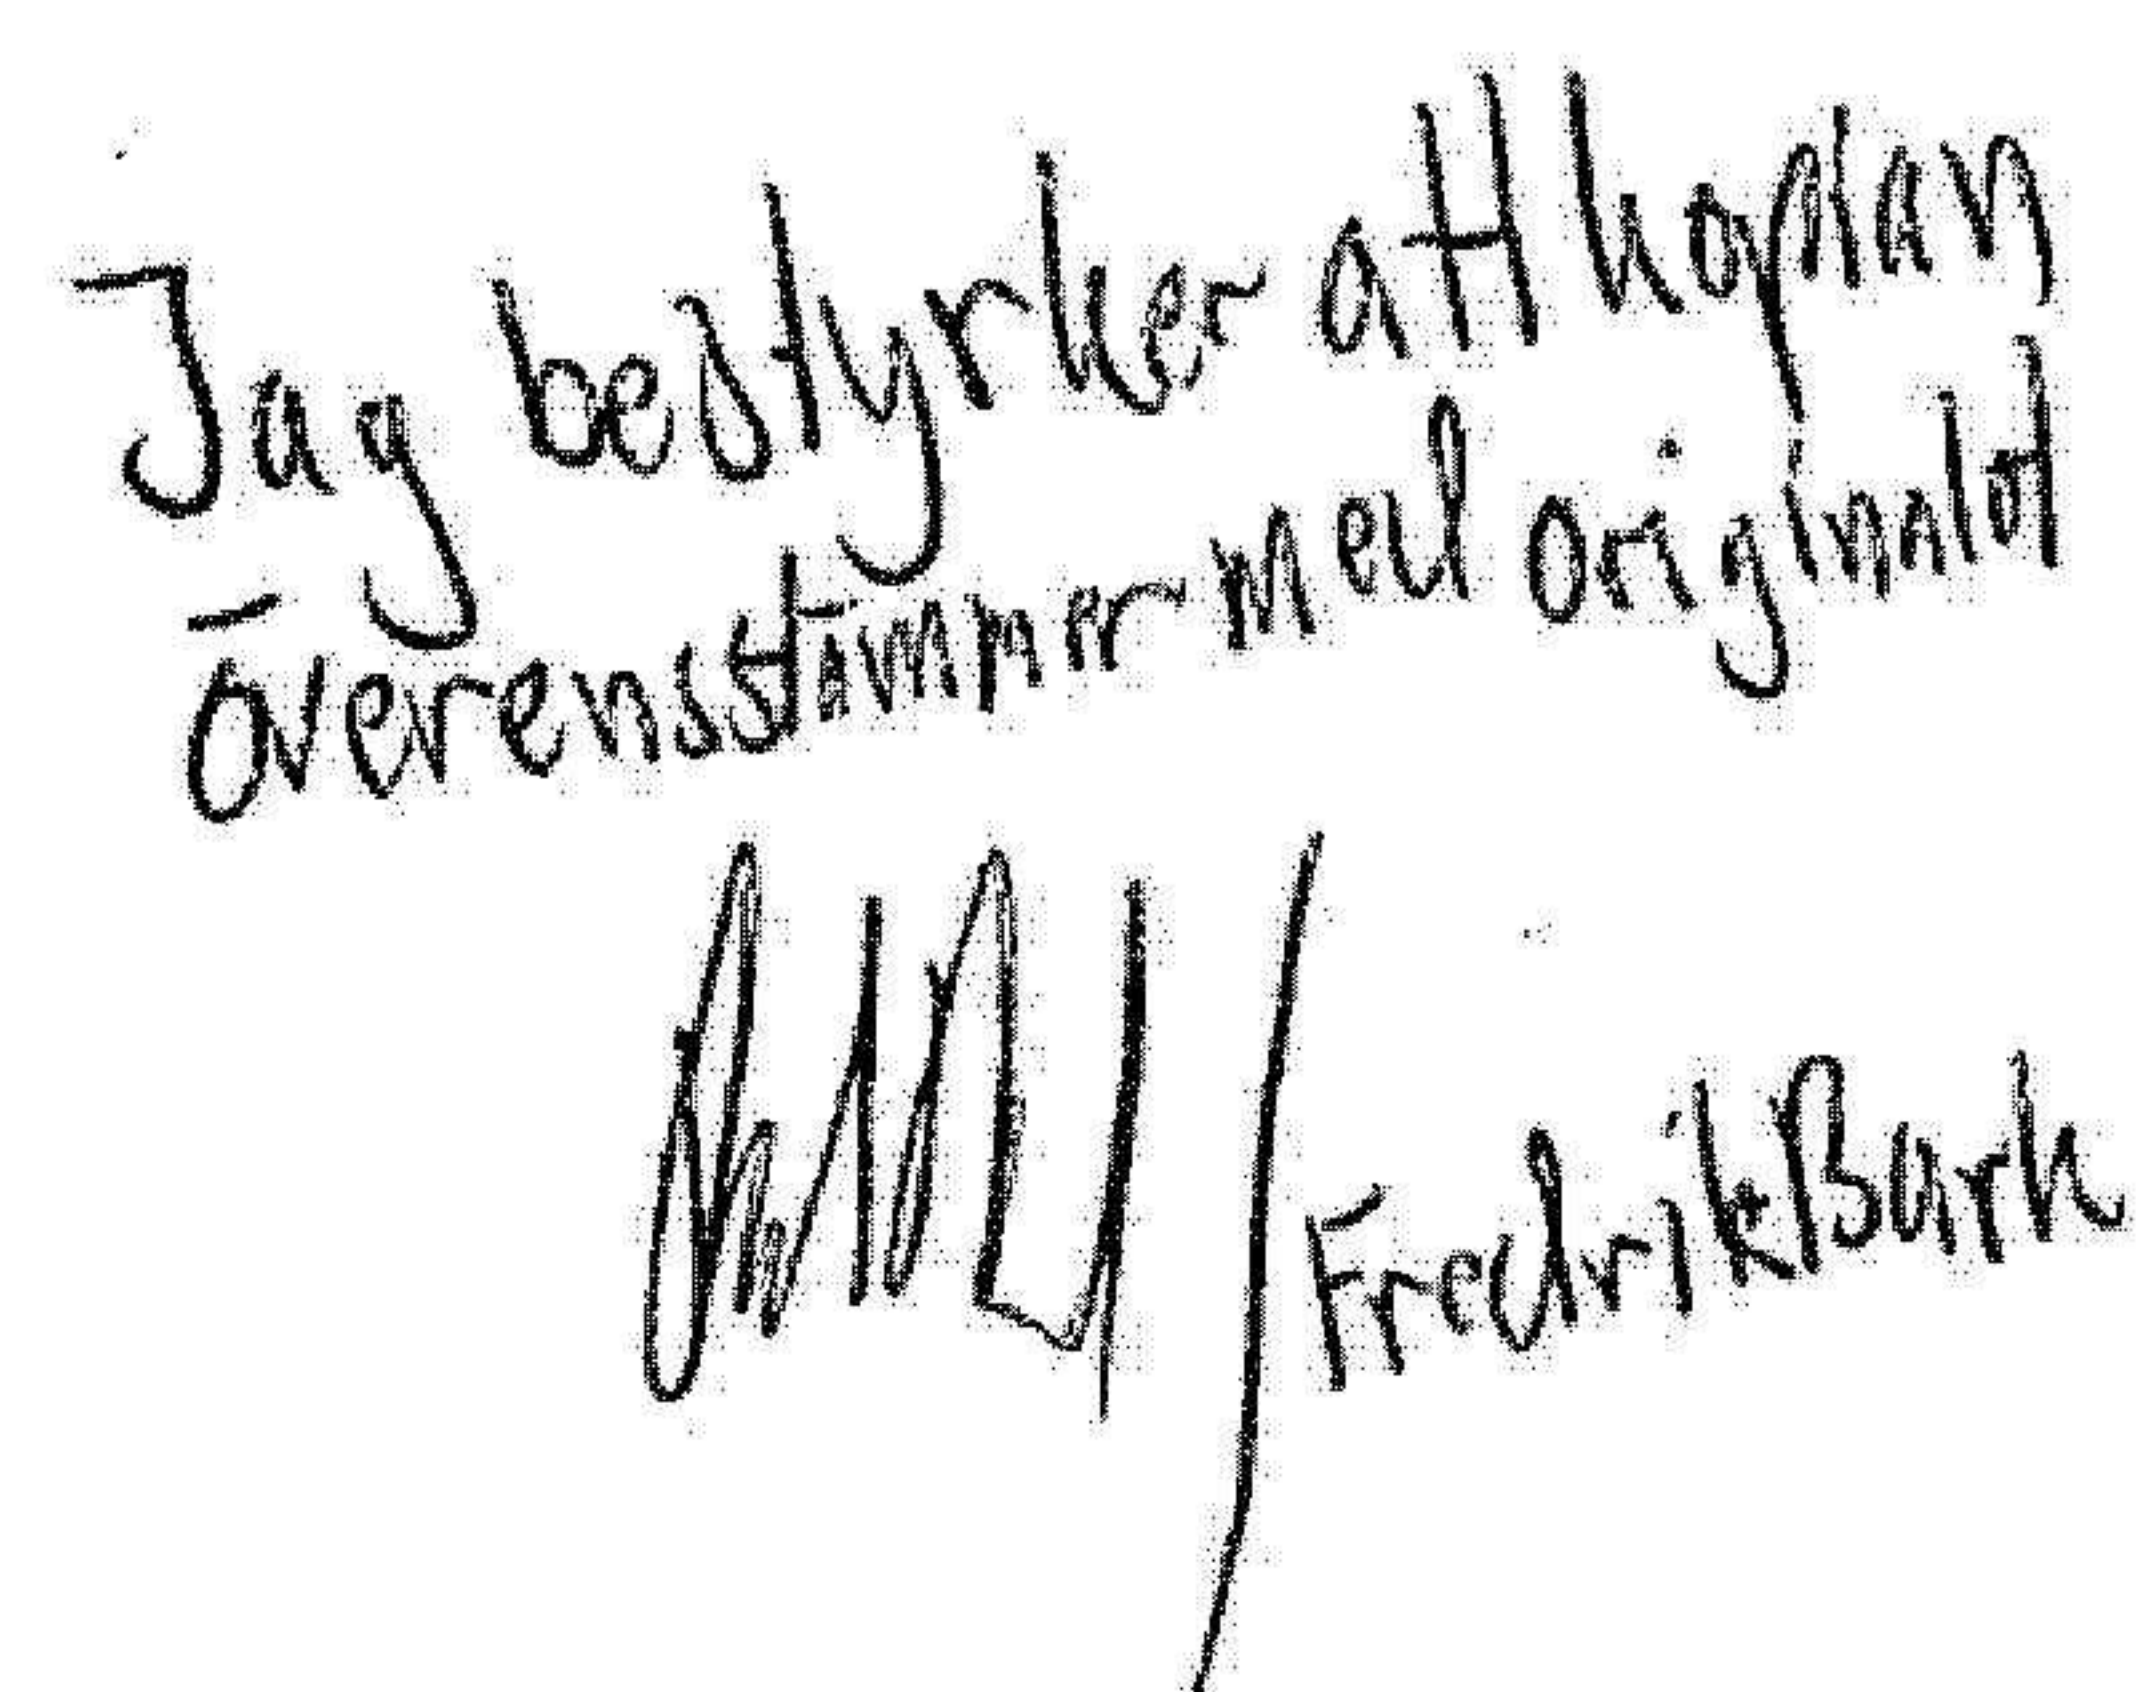 Jag bestyrker att kopian
överensstämmer med originalet
Fredrik Bark